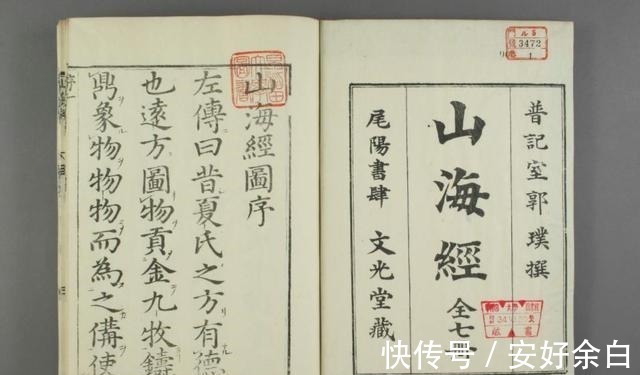 普記室郭璞撰
山海經
全七冊
尾陽書肆 文光堂藏
3472
1
山海經圖序
左傳曰昔夏氏之方有德
也遠方圖物貢金九牧鑄
鼎象物物物而為之備使
序一
快传号 / 安好余白